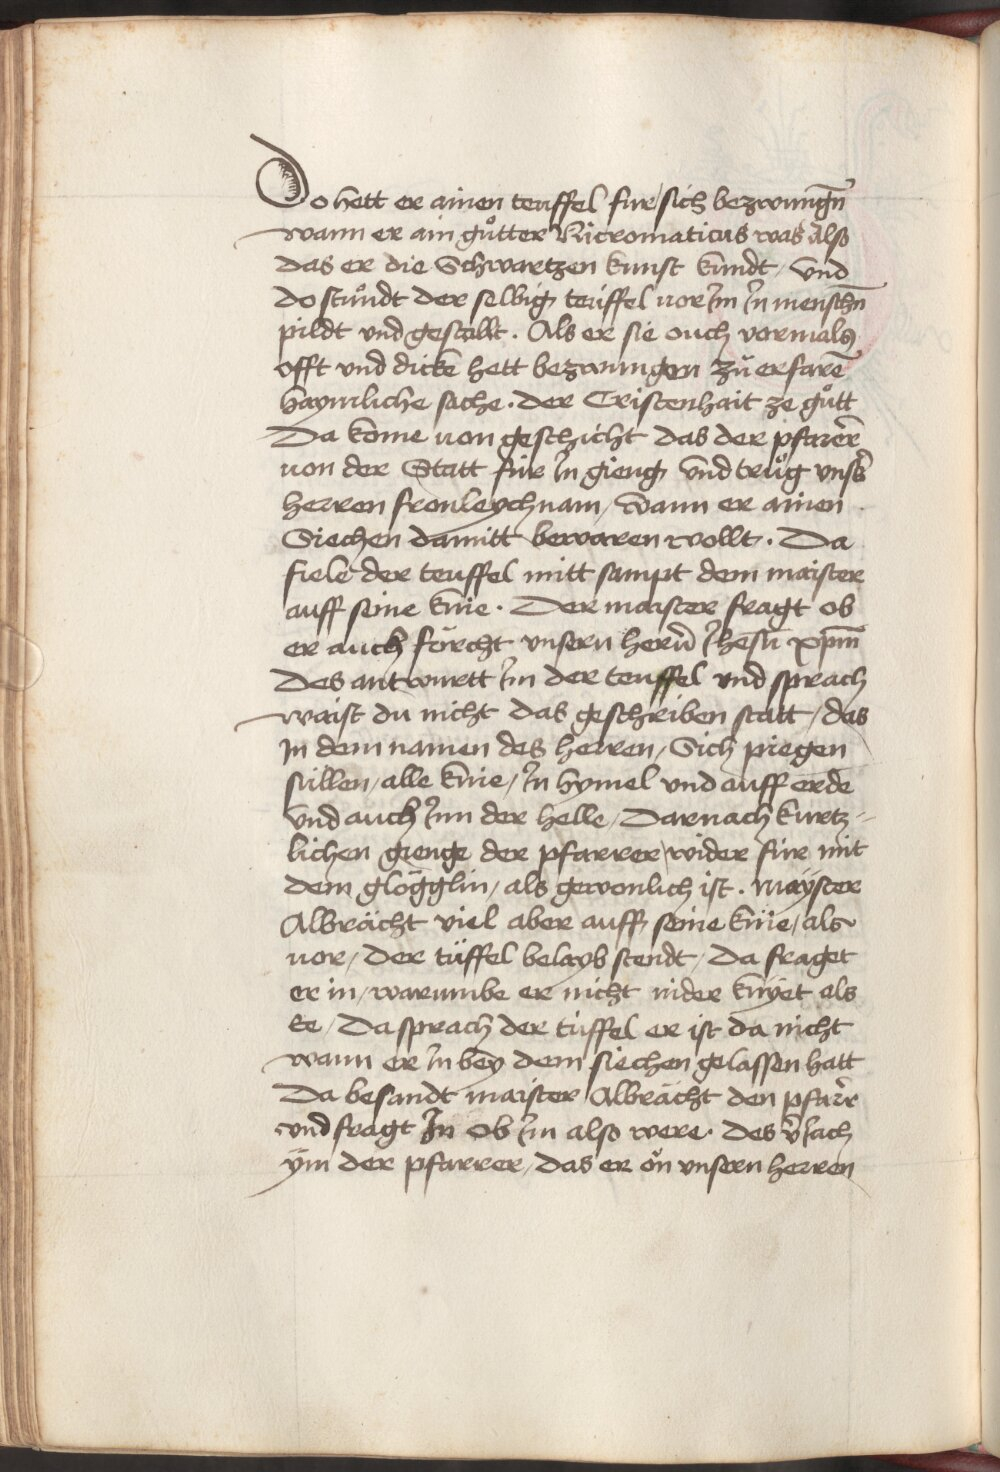 Do hett er ainen teuffel fur sich bezwungn̄
wann er ain gůtter Nicromaticus was Also
das er die Schwartzen kunst kundt / vnd
do stůndt der selbig teuffel vor Im In menschn̄
pildt vnd gestallt . Als er sie ouch vormals
offt vnd dicke hett bezwungen zů erfarē
haymliche sache . der Cristenhait ze gůtt
Da kome von geschicht das der pfarēr
von der Statt für In gieng vnd trůg vnsēr
herren fronleychnam / wann er ainen
Siechen damitt bewaren wollt . Da
fiele der teuffel mitt sampt dem maister
auff seine knie . Der maister fragt ob
er auch förcht vnsern herrn̄ Jhesū xpm̄
Des antwurtt Im der teuffel vnd sprach
waist du nicht das geschriben statt / das
In dem namen des herren / Sich piegen
süllen / alle knie / In hymel vnd auff erde
vnd auch Inn der helle / Darnach kurtz=
lichen gienge der pfarrer wider für mit
dem glögglin / als gewonlich ist . mayster
Albrächt viel aber auff seine knüe / als
vor / Der tüffel belayb stendt / Da fraget
er in / warumbe er nicht nider knyet als
Ee / Da sprach der tüffel er ist da nicht
wann er In bey dem siechen gelassen hatt
Da besandt maister Albrächt den pfarēr
vnd fragt In ob Im also were . des v̄Jach
ÿm der pfarrer / das er ön vnsern herren